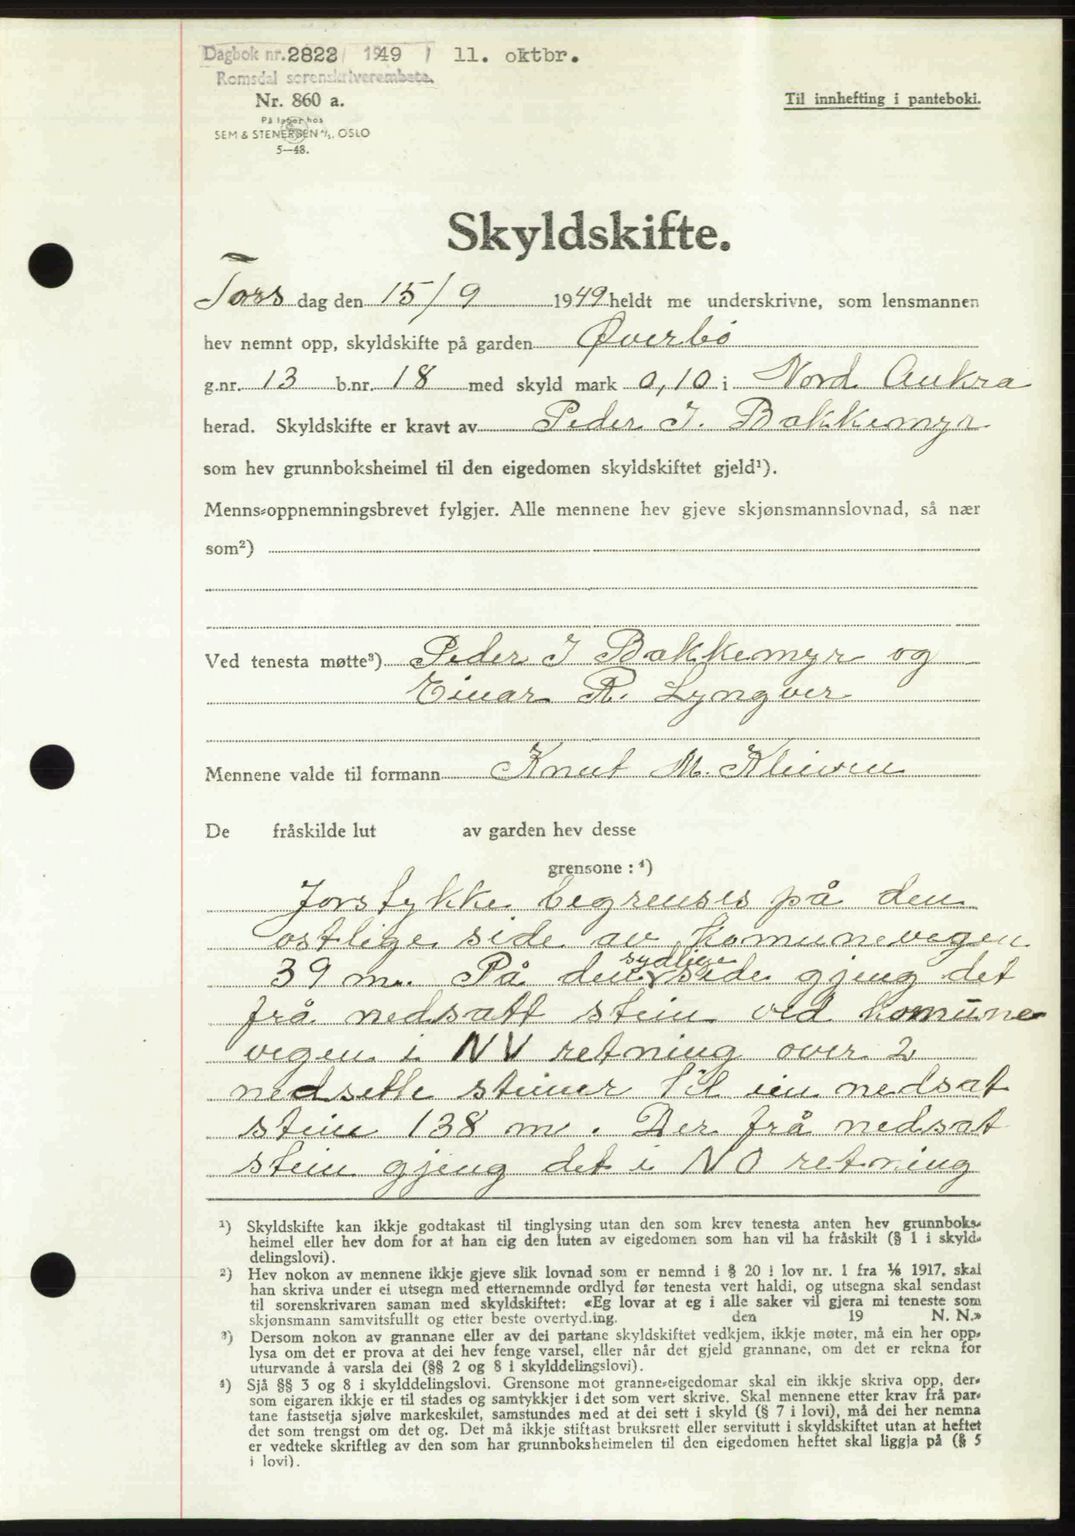 Dagbok nr. 2822 / 1949 / 11. oktbr.
Romsdal sorenskriverembete.
Nr. 860 a.
Til innhefting i panteboki.
På lager hos
SEM & STENERSEN A/S, OSLO
5—48.
Skyldskifte.
Tors dag den 15/9 1949 heldt me underskrivne, som lensmannen
hev nemnt opp, skyldskifte på garden Øverbø
g.nr. 13 b.nr. 18 med skyld mark 0,10 i Nord Aukra
herad. Skyldskifte er kravt av Peder J. Bakkemyr
som hev grunnboksheimel til den eigedomen skyldskiftet gjeld¹).
Menns-oppnemningsbrevet fylgjer. Alle mennene hev gjeve skjønsmannslovnad, så nær
som²)
Ved tenesta møtte³) Peder J Bakkemyr og
Einar R. Lyngver
Mennene valde til formann Knut M. Kleiven
De fråskilde lut av garden hev desse
grensone : ⁴)
Jorstykke begrenses på den
østlige side av komunevegen
39 m. På den sydlige side gjeng det
frå nedsatt stein ved komune
vegen i NV retning over 2
nedsette steiner til ein nedsat
stein 138 m. Der frå nedsat
stein gjeng det i NO retning
¹) Skyldskifte kan ikkje godtakast til tinglysing utan den som krev tenesta anten hev grunnboks-
heimel eller hev dom for at han eig den luten av eigedomen som han vil ha fråskilt (§ 1 i skyld-
delingslovi).
²) Hev nokon av mennene ikkje gjeve slik lovnad som er nemnd i § 20 i lov nr. 1 fra 1/6 1917, skal
han skriva under ei utsegn med etternemnde ordlyd før tenesta vert haldi, og utsegna skal sendast
til sorenskrivaren saman med skyldskiftet: «Eg lovar at eg i alle saker vil gjera mi teneste som
skjønsmann samvitsfullt og etter beste overtyding. den 19 N. N.»
³) Dersom nokon av grannane eller av dei partane skyldskiftet vedkjem, ikkje møter, må ein her opp-
lysa om det er prova at dei hev fenge varsel, eller når det gjeld grannane, om det er rekna for
uturvande å varsla dei (§§ 2 og 8 i skylddelingslovi).
⁴) Sjå §§ 3 og 8 i skylddelingslovi. Grensone mot granne-eigedomar skal ein ikkje skriva opp, der-
som eigaren ikkje er til stades og samtykkjer i det som vert skrive. Skal mennene etter krav frå par-
tane fastsetja sjølve markeskilet, samstundes med at dei sett i skyld (§ 7 i lovi), må dei her nemna
det som trengst om det og. Det må ikkje stiftast bruksrett eller servitutt i skyldskiftet utan at heftet
er vedteke skriftleg av den som har grunnboksheimelen til den eigedomen heftet skal liggja på (§ 5
i lovi).